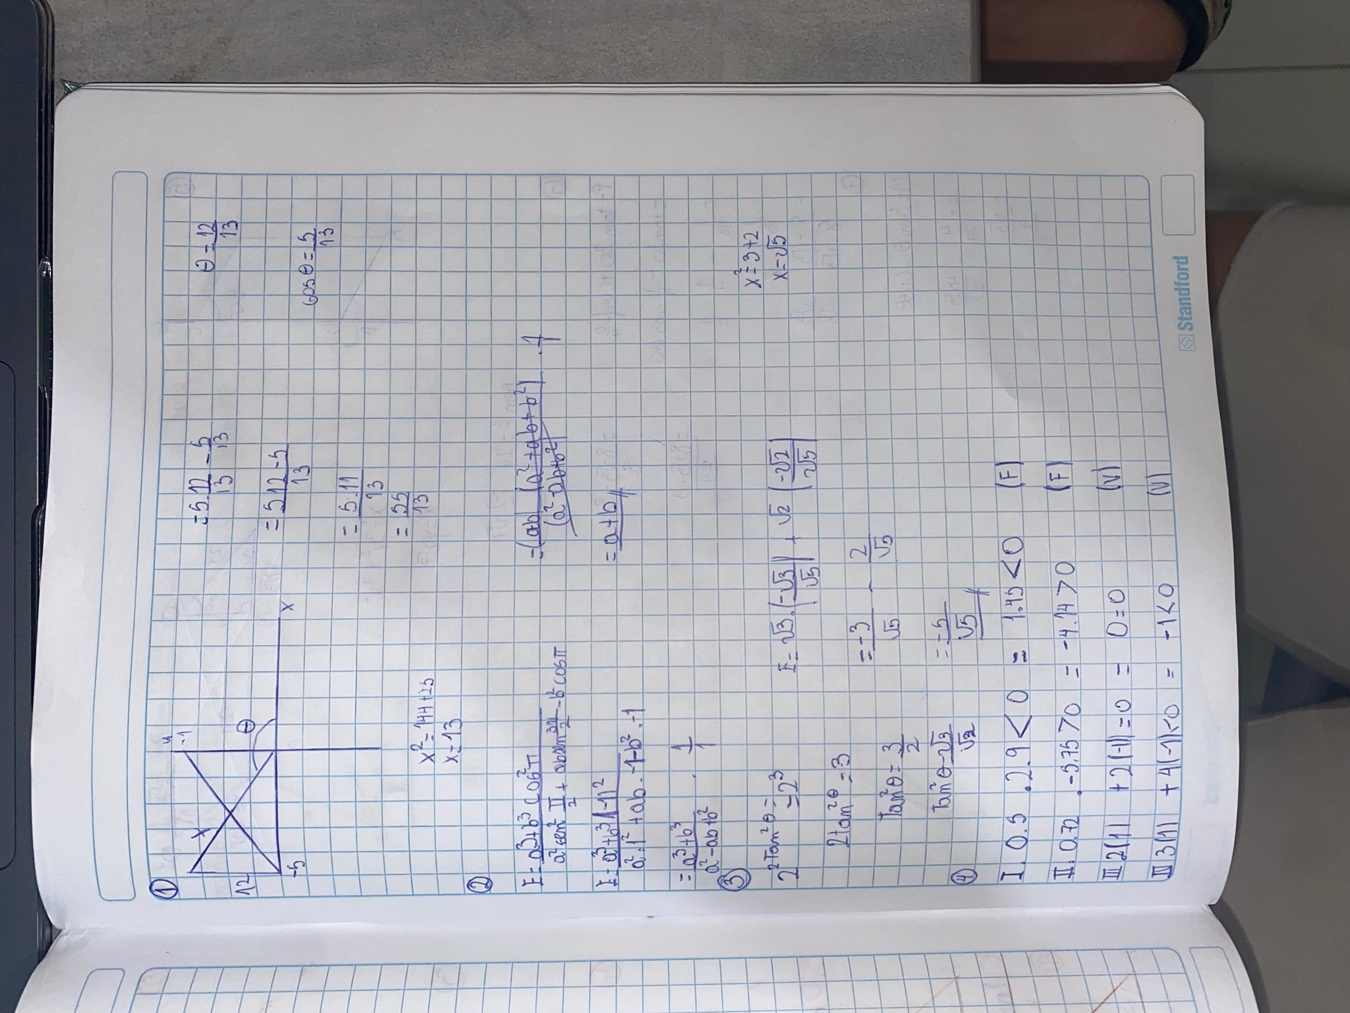 ①
y
-1
x
12
-5
θ
x
x² = 144 + 25
x = 13
= 5.12/13 - 5/13
= 5.12-5/13
= 5.11/13
= 55/13
θ = 12/13
cosθ = 5/13
②
E = a³+b³ cos²π / a² sen² π/2 + ab sen 3π/2 - b² cos π
E = a³+b³(-1)² / a².1² + ab.-1-b².-1
= a³+b³ / a²-ab+b² . 1/1
= (a+b (a²+ab+b²) / (a²-ab+b²) . 1
= a+b //
③
2^2Tan²θ = = 2³
2tan²θ = 3
Tan²θ = 3/2
Tan²θ - √3/√2
E = √3 . (-√3/√5) + √2 (-√2/√5)
= -3/√5 - 2/√5
= -5/√5 //
x² = 3+2
x = √5
④
I. 0.5 . 2.9 < 0 = 1.45 < 0 (F)
II. 0.72 . -5.75 > 0 = -4.14 > 0 (F)
III 2(1) + 2(-1) = 0 = 0 = 0 (V)
III 3(1) + 4(-1) < 0 = -1 < 0 (V)
Standford